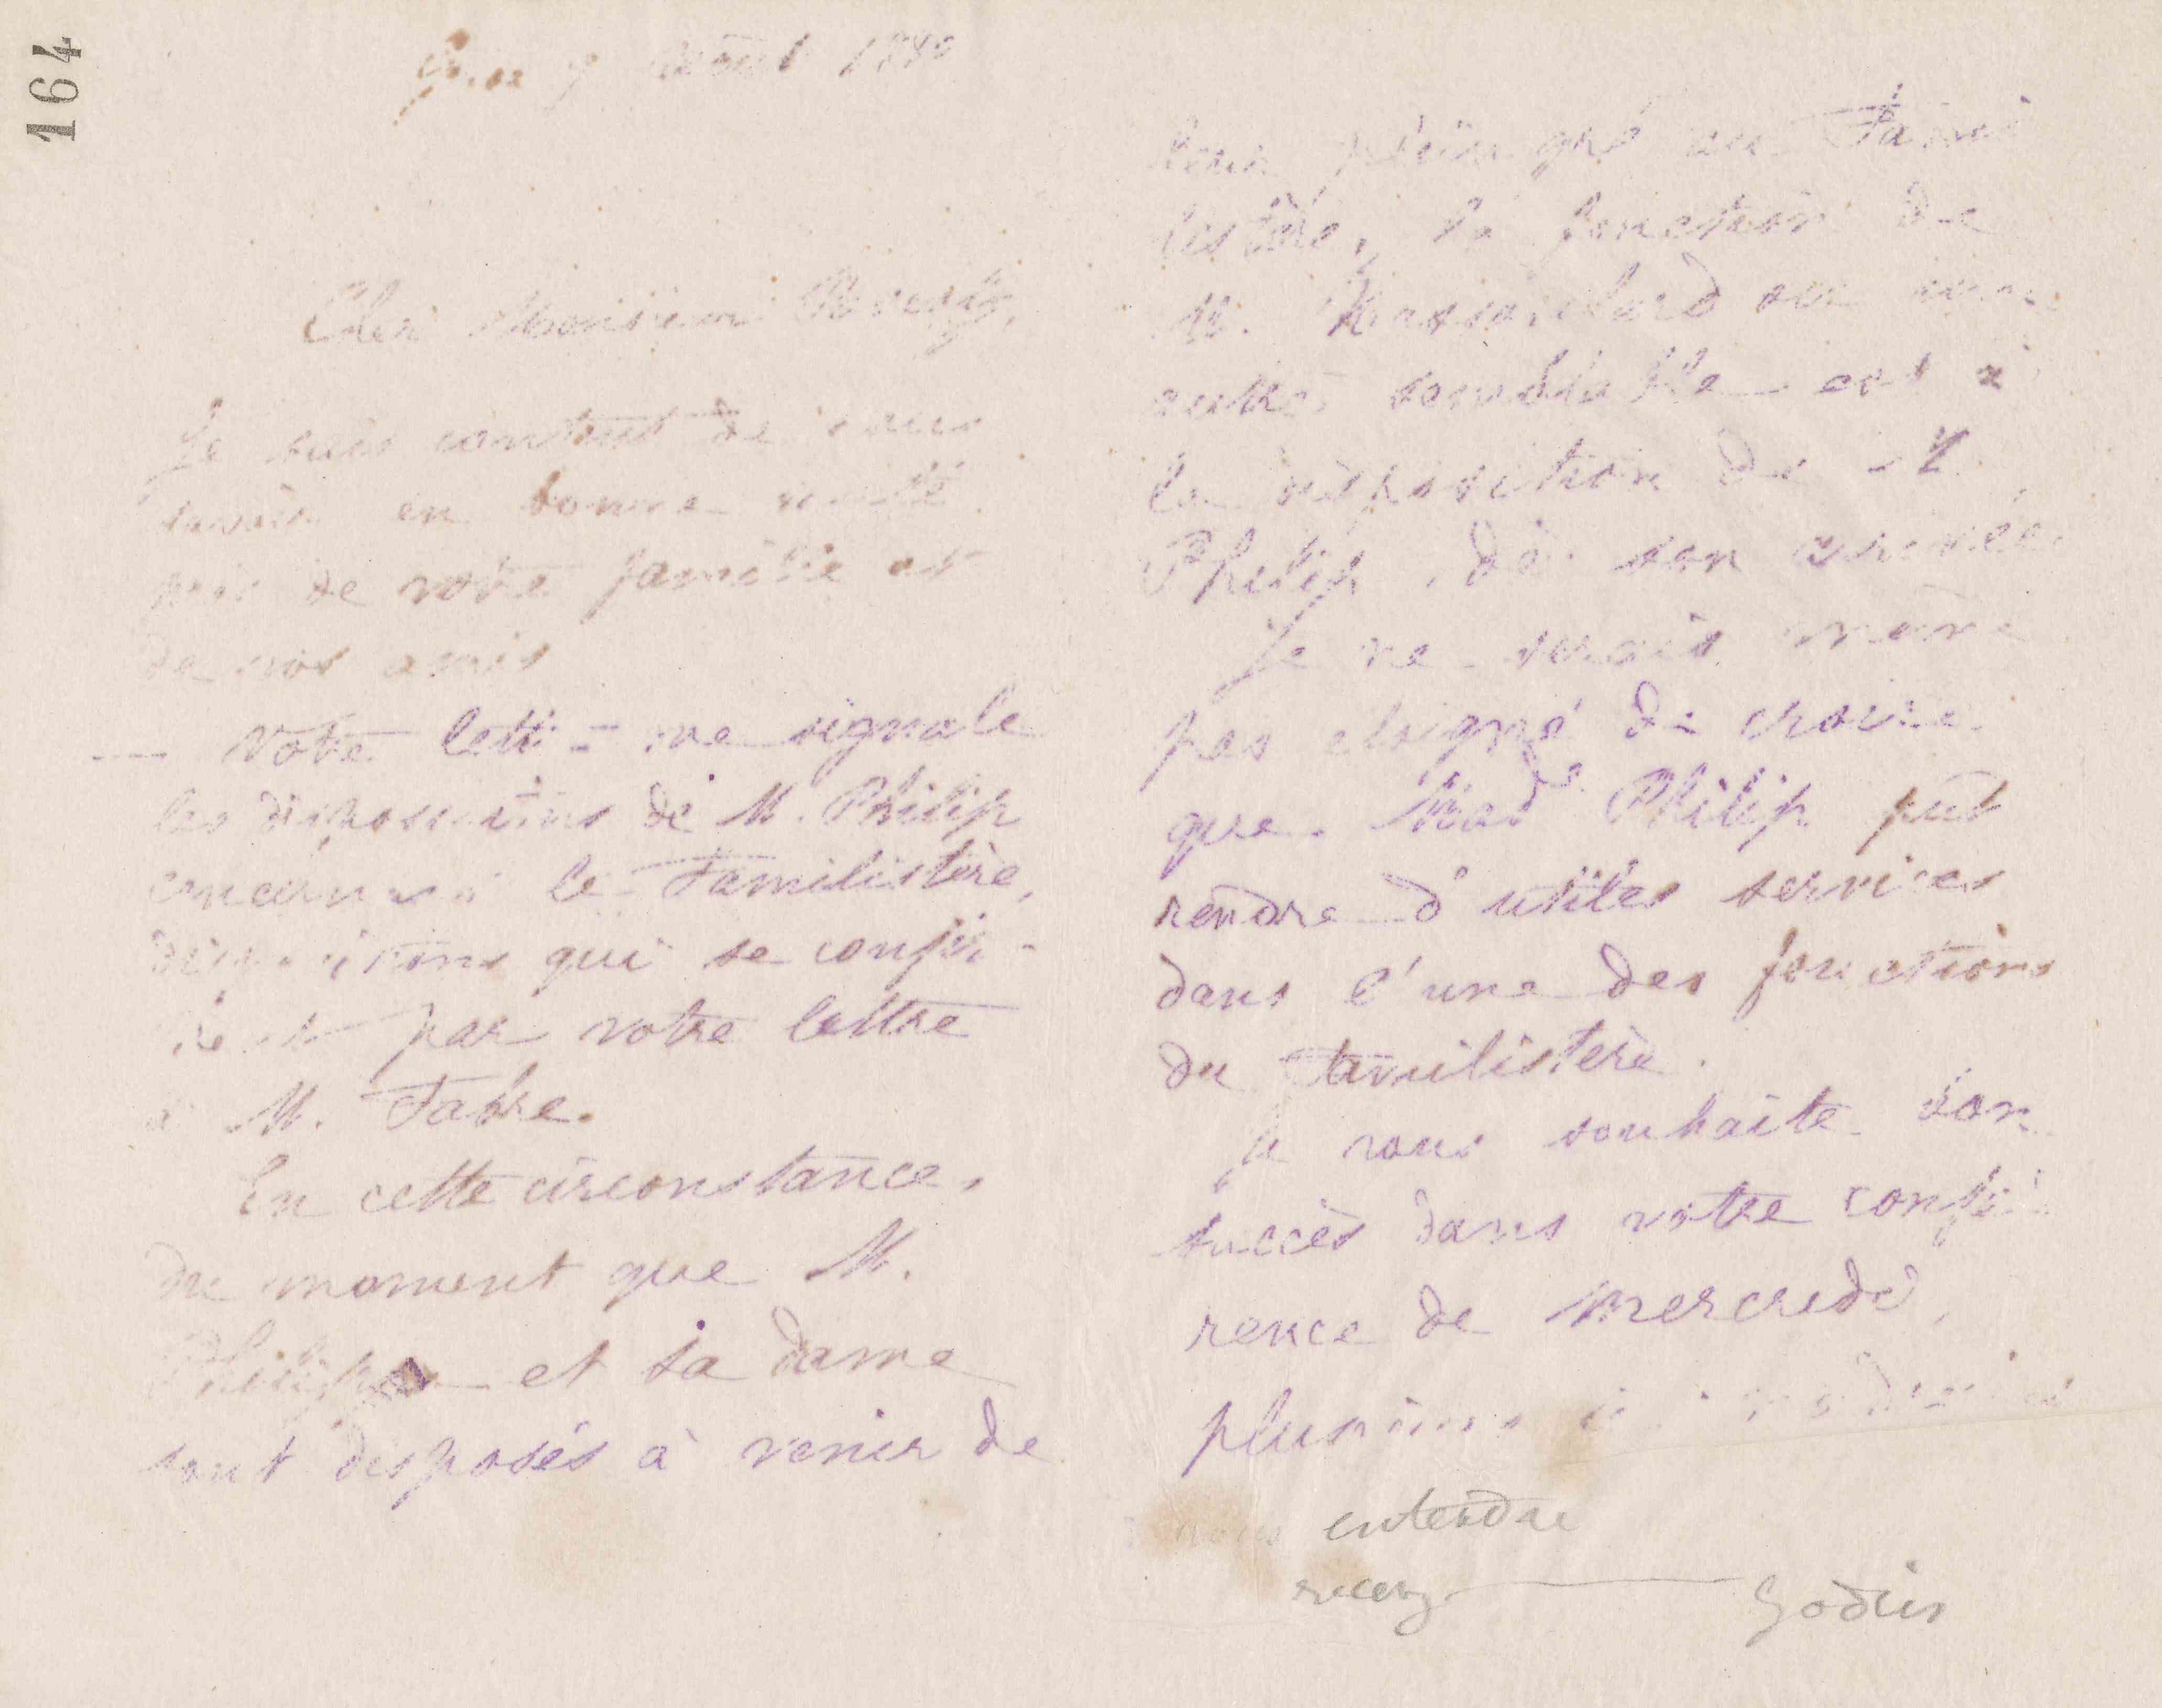 164
Guise 7 août 1880
Cher Monsieur
Je suis content de vous
savoir en bonne santé
près de votre famille et
de nos amis
Votre lettre me signale
les dispositions de M. Philip
concernant le Familistère,
dispositions qui se confir-
ment par votre lettre
à M. Fabre.
En cette circonstance,
du moment que M.
Philip et sa dame
sont disposés à venir de
leur plein gré au Fami
listère, la fonction de
M. Massoulard ou une
autre semblable est à
la disposition de M.
Philip, dès son arrivée.
Je ne serais même
pas éloigné de croire
que Made Philip put
rendre d'utiles services
dans l'une des fonctions
du Familistère.
Je vous souhaite bon
succès dans votre confé
rence de mercredi,
plusieurs
vous entendre
recevez Godin